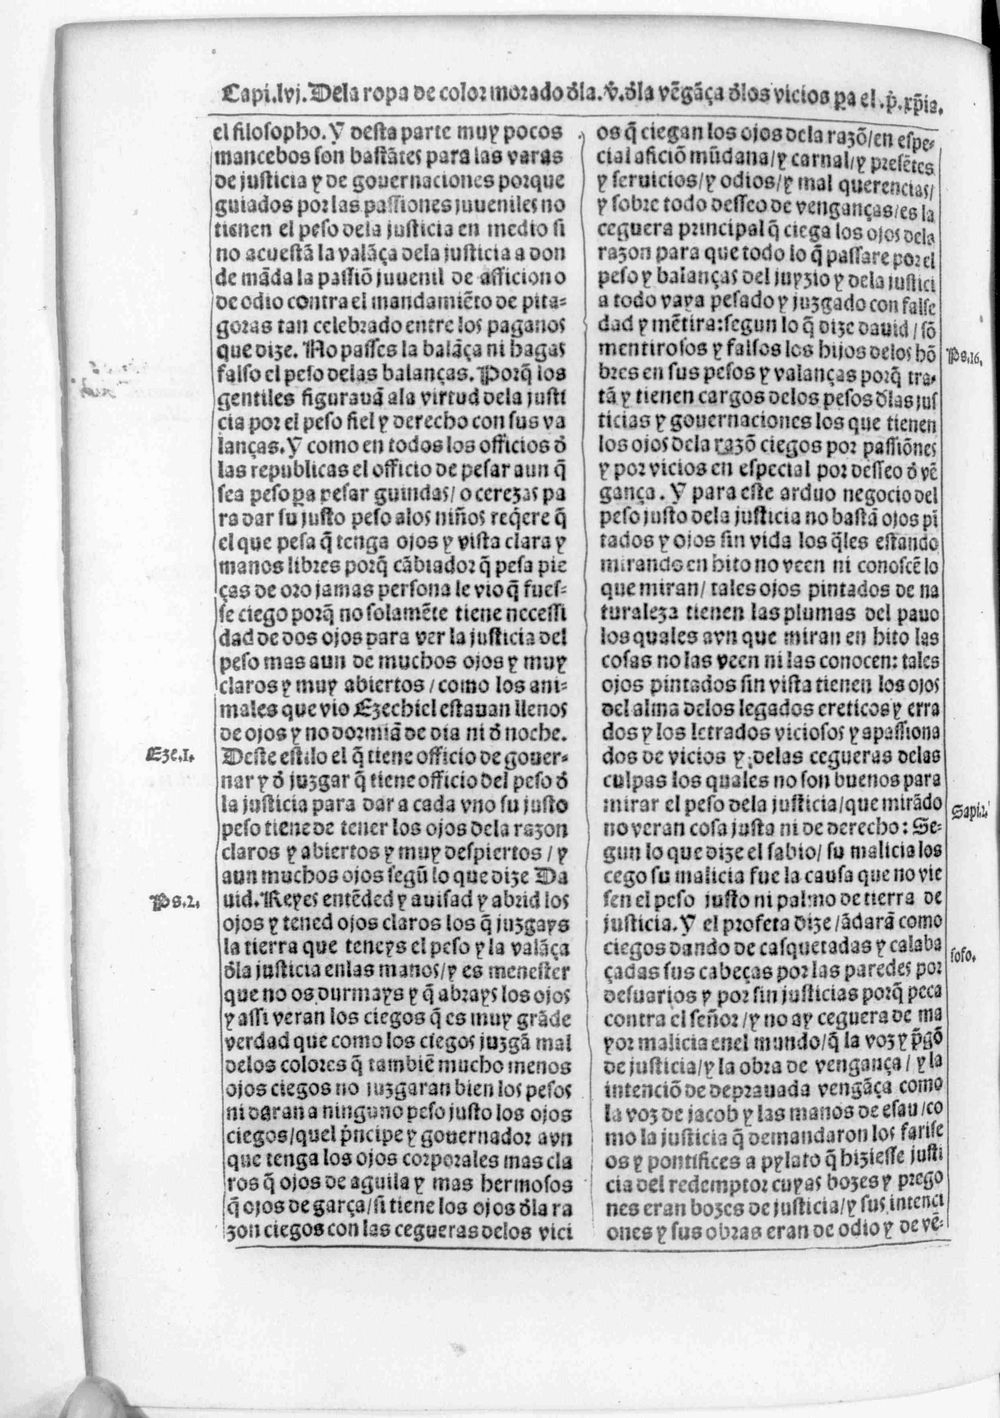 Capi.lvj.Dela ropa de color morado đla.v̊.đla vẽgãça đlos vicios ꝑa el.p̊.xp̃ia.
el filosopho. Y desta parte muy pocos
mancebos son bastãtes para las varas
de justicia y de gouernaciones porque
guiados por las passiones juueniles no
tienen el peso dela justicia en medio si
no acuestã la valãça dela justicia a don
de mãda la passiõ juuenil de afficion o
de odio contra el mandamiẽto de pita-
goras tan celebrado entre los paganos
que dize. No passes la balãça ni hagas
falso el peso delas balanças. Porq̃ los
gentiles figurauã ala virtud dela justi
cia por el peso fiel y derecho con sus va
lanças. Y como en todos los officios đ
las republicas el officio de pesar aun q̃
sea peso ꝑa pesar guindas/o cerezas pa
ra dar su justo peso alos niños req̃ere q̃
el que pesa q̃ tenga ojos y vista clara y
manos libres porq̃ cãbiador q̃ pesa pie
ças de oro jamas persona le vio q̃ fues-
se ciego porq̃ no solamẽte tiene necessi
dad de dos ojos para ver la justicia del
peso mas aun de muchos ojos y muy
claros y muy abiertos/como los ani-
males que vio Ezechiel estauan llenos
de ojos y no dormiã de dia ni đ noche.
Eze.1.
Deste estilo el q̃ tiene officio de gouer-
nar y đ juzgar q̃ tiene officio del peso đ
la justicia para dar a cada vno su justo
peso tiene de tener los ojos dela razon
claros y abiertos y muy despiertos/y
aun muchos ojos segũ lo que dize Da
Ps.2.
uid. Reyes entẽded y auisad y abrid los
ojos y tened ojos claros los q̃ juzgays
la tierra que teneys el peso y la valãça
đla justicia enlas manos/y es menester
que no os durmays y q̃ abrays los ojos
y assi veran los ciegos q̃ es muy grãde
verdad que como los ciegos juzgã mal
delos colores q̃ tambiẽ mucho menos
ojos ciegos no juzgaran bien los pesos
ni daran a ninguno peso justo los ojos
ciegos/quel p̃ncipe y gouernador avn
que tenga los ojos corporales mas cla
ros q̃ ojos de aguila y mas hermosos
q̃ ojos de garça/si tiene los ojos đla ra
zon ciegos con las cegueras delos vici
os q̃ ciegan los ojos dela razõ/en espe-
cial aficiõ mũdana/y carnal/y presẽtes
y seruicios/y odios/y mal querencias/
y sobre todo desseo de venganças/es la
ceguera principal q̃ ciega los ojos dela
razon para que todo lo q̃ passare por el
peso y balanças del juyzio y dela justici
a todo vaya pesado y juzgado con false
dad y mẽtira: segun lo q̃ dize dauid/sõ
mentirosos y falsos los hijos delos hõ
Ps.16.
bres en sus pesos y valanças porq̃ tra-
tã y tienen cargos delos pesos đlas jus
ticias y gouernaciones los que tienen
los ojos dela razõ ciegos por passiões
y por vicios en especial por desseo đ vẽ
gança. Y para este arduo negocio del
peso justo dela justicia no bastã ojos pĩ
tados y ojos sin vida los q̃les estando
mirando en hito no veen ni conoscẽ lo
que miran/tales ojos pintados de na
turaleza tienen las plumas del pauo
los quales avn que miran en hito las
cosas no las veen ni las conocen: tales
ojos pintados sin vista tienen los ojos
del alma delos legados ereticos y erra
dos y los letrados viciosos y apassiona
dos de vicios y delas cegueras delas
culpas los quales no son buenos para
mirar el peso dela justicia/que mirãdo
Sapi.2.
no veran cosa justa ni de derecho: Se-
gun lo que dize el sabio/su malicia los
cego su malicia fue la causa que no vie
sen el peso justo ni palmo de tierra de
justicia. Y el profeta dize/ãdarã como
ciegos dando de casquetadas y calaba
sofo.
çadas sus cabeças por las paredes por
desuarios y por sin justicias porq̃ peca
contra el señor/y no ay ceguera de ma
yor malicia enel mundo/q̃ la voz y p̃gõ
de justicia/y la obra de vengança/y la
intenciõ de deprauada vengãça como
la voz de jacob y las manos de esau/co
mo la justicia q̃ demandaron los farise
os y pontifices a pylato q̃ hiziesse justi
cia del redemptor cuyas bozes y prego
nes eran bozes de justicia/y sus intenci
ones y sus obras eran de odio y de vẽ-